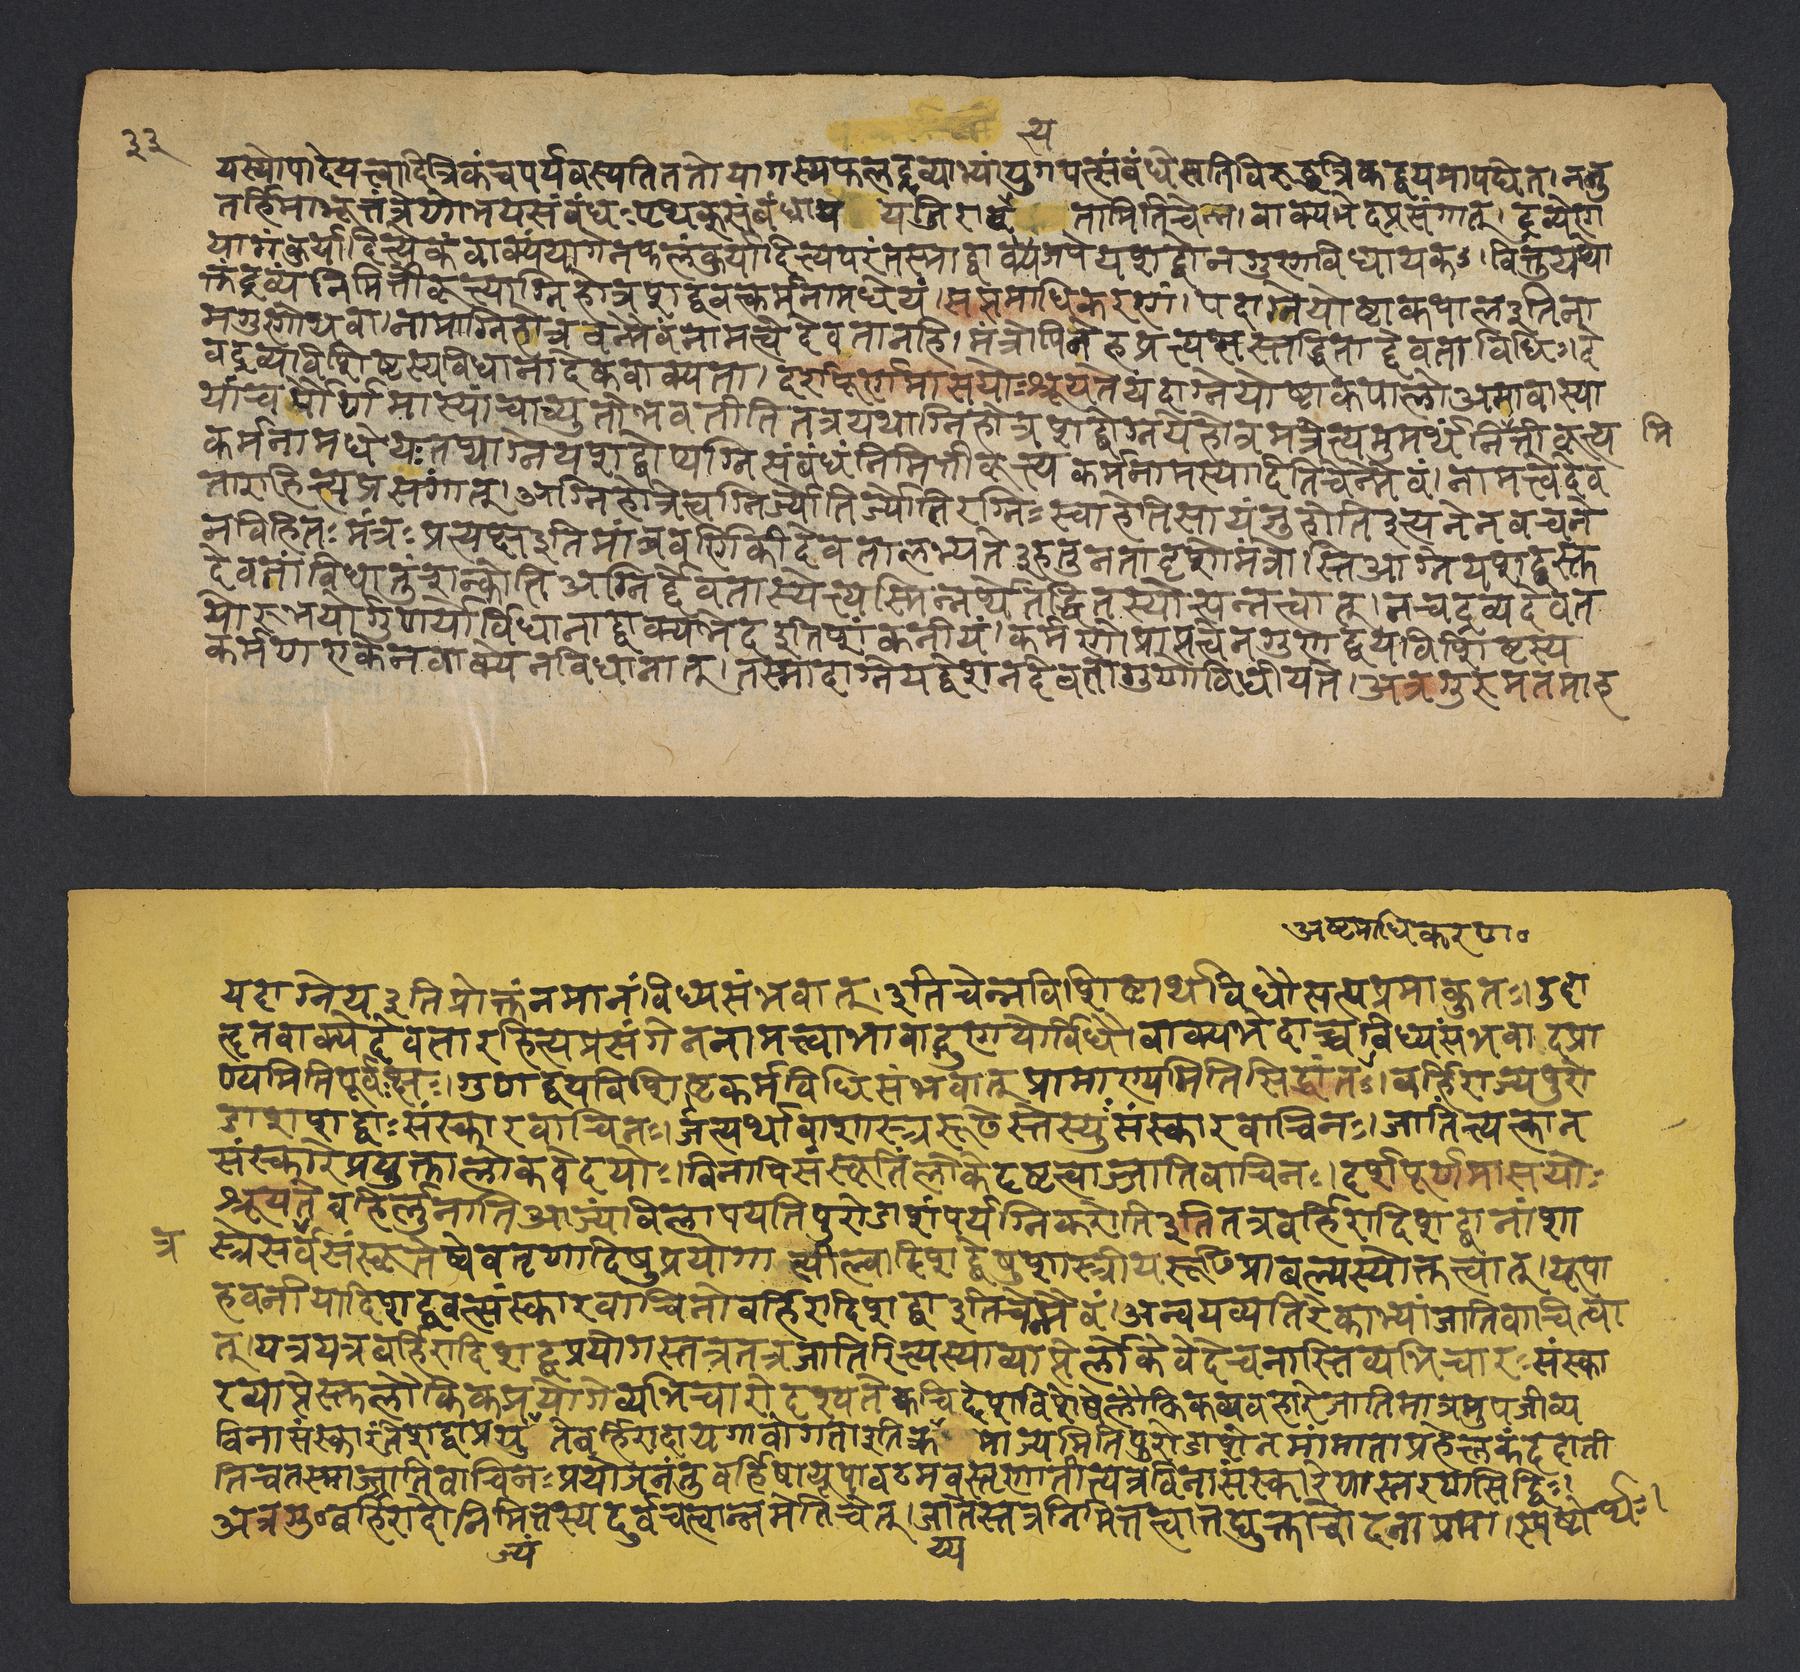 ३३
त्य
यस्योपादेयत्वादित्रिकंचपर्यवस्यतिततोयागस्यफलद्रव्याभ्यांयुगपत्संबंधेसतिविरुद्धत्रिकद्वयमापद्येत।ननु
तर्हिमाभूत्तंत्रेणोभयसंबंधःपृथक्संबंधाय यजिरा तामितिचेन्न।वाक्यभेदप्रसंगात्।द्रव्येण
यागंकुर्यादित्येकंवाक्यंयागेनफलंकुर्यादित्यपरंतस्माद्वाजपेयशब्दोनगुणविधायकः।किंतुयथा
क्तंद्रव्यंनिमित्तीकृत्याग्निहोत्रशब्दवत्कर्मनामधेयं।सप्तमाधिकरणं।यदाग्नेयोष्टाकपालइतिना
मगुणोथवा।नामाग्निहोत्रवन्मैवंनामत्वेदेवतानहि।मंत्रोपिनेहप्रत्यक्षस्तद्धिताद्देवताविधिः।दे
वद्रव्यविशिष्टस्यविधानादेकवाक्यता।दर्शपूर्णमासयोःश्रूयतेयदाग्नेयोष्टाकपालोअमावास्या
यांचपौर्णमास्यांचाच्युतोभवतीतितत्रयथाग्निहोत्रशब्दोग्नयेहोत्रमत्रेत्यमुमर्थंनित्तीकृत्य मि
कर्मनामधेयंतथाग्नेयशब्दोप्यग्निसंबंधंनिमित्तीकृत्यकर्मनामस्यादितिचेन्मैवं।नामत्वेदेव
ताराहित्यप्रसंगात्।अग्निहोत्रेत्वग्निर्ज्योतिर्ज्योतिरग्निःस्वाहेतिसायंजुहोतिइत्यनेनवचने
नविहितःमंत्रःप्रत्यक्षइतिमांत्रवर्णिकीदेवतालभ्यतेइहतुनतादृशोमंत्रोस्तिआग्नेयशब्दस्तु
देवतांविधातुंशक्नोतिअग्निर्देवतास्येत्यस्मिन्नर्थेतद्धितस्योत्पन्नत्वात्।नचद्रव्यदेवत
योरुभयोर्गुणयोर्विधानाद्वाक्यभेदइतिशंकनीयं।कर्मणोप्राप्तत्वेनगुणद्वयविशिष्टस्य
कर्मणएकेनवाक्येनविधानात्।तस्मादाग्नेयशब्देनदेवतागुणोविधीयते।अत्रगुरुमतमाह
अष्टमाधिकरण॰
यदाग्नेयइतिप्रोक्तंनमानंविध्यसंभवात्।इतिचेन्नविशिष्टार्थविधौसत्यप्रमाकुतः।उदा
हृतवाक्येदेवताराहित्यप्रसंगेननामत्वाभावाद्गुणयोर्विधौवाक्यभेदाच्चविध्यसंभवादप्रा
ण्यमितिपूर्वःपक्षः।गुणद्वयविशिष्टकर्मविधिसंभवात्प्रामाण्यमितिसिद्धांतः।बर्हिराज्यपुरो
डाशशब्दाःसंस्कारवाचिनः।जात्यर्थावाशास्त्ररूढेस्तेस्युःसंस्कारवाचिनः।जातिंत्यक्त्वान
संस्कारेप्रयुक्तालोकवेदयोः।विनापिसंस्कृतिंलोकेदृष्टत्वाज्जातिवाचिनः।दर्शपूर्णमासयोः
श्रूयतेबर्हिर्लुनातिआज्यंविलापयतिपुरोडाशंपर्यग्निकरोतिइतितत्रबर्हिरादिशब्दानांशा
त्र स्त्रेसर्वसंस्कृतेष्वेवतृणादिषुप्रयोगात्पील्वादिशब्देषुशास्त्रीयरूढिप्राबल्यस्योक्तत्वात्।यूपा
हवनीयादिशब्दवत्संस्कारवाचिनोबर्हिरादिशब्दाइतिचेन्मैवं।अन्वयव्यतिरेकाभ्यांजातिवाचित्वा
त्।यत्रयत्रबर्हिरादिशब्दप्रयोगस्तत्रतत्रजातिरित्यस्याव्याप्तेर्लोकेवेदेचनास्तिव्यभिचारःसंस्का
रव्याप्तेस्तुलौकिकप्रयोगेव्यभिचारोदृश्यतेक्वचिद्देशविशेषेलौकिकव्यवहारेजातिमात्रमुपजीव्य
विनासंस्कारंतेशब्दाप्रयु तेबर्हिरादायगावोगताइतिक्र माज्यमितिपुरोडाशेनमांमाताप्रहेलकंददाती
तिचतस्माज्जातिवाचिनःप्रयोजनंतुबर्हिषायूपावटमवस्तृणातीत्यत्रविनासंस्कारेणास्तरणसिद्धिः।
अत्रगु॰बर्हिरादौनिमित्तस्यदुर्वचत्वान्नमेतिचेत्।जातेस्तत्रनिमित्तत्वात्तद्युक्ताचोदनाप्रमा।स्पष्टोर्थः।
ज्यं
य्य